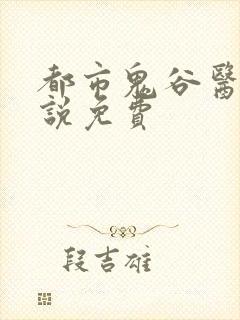 都市鬼谷醫
說免費
段吉雄